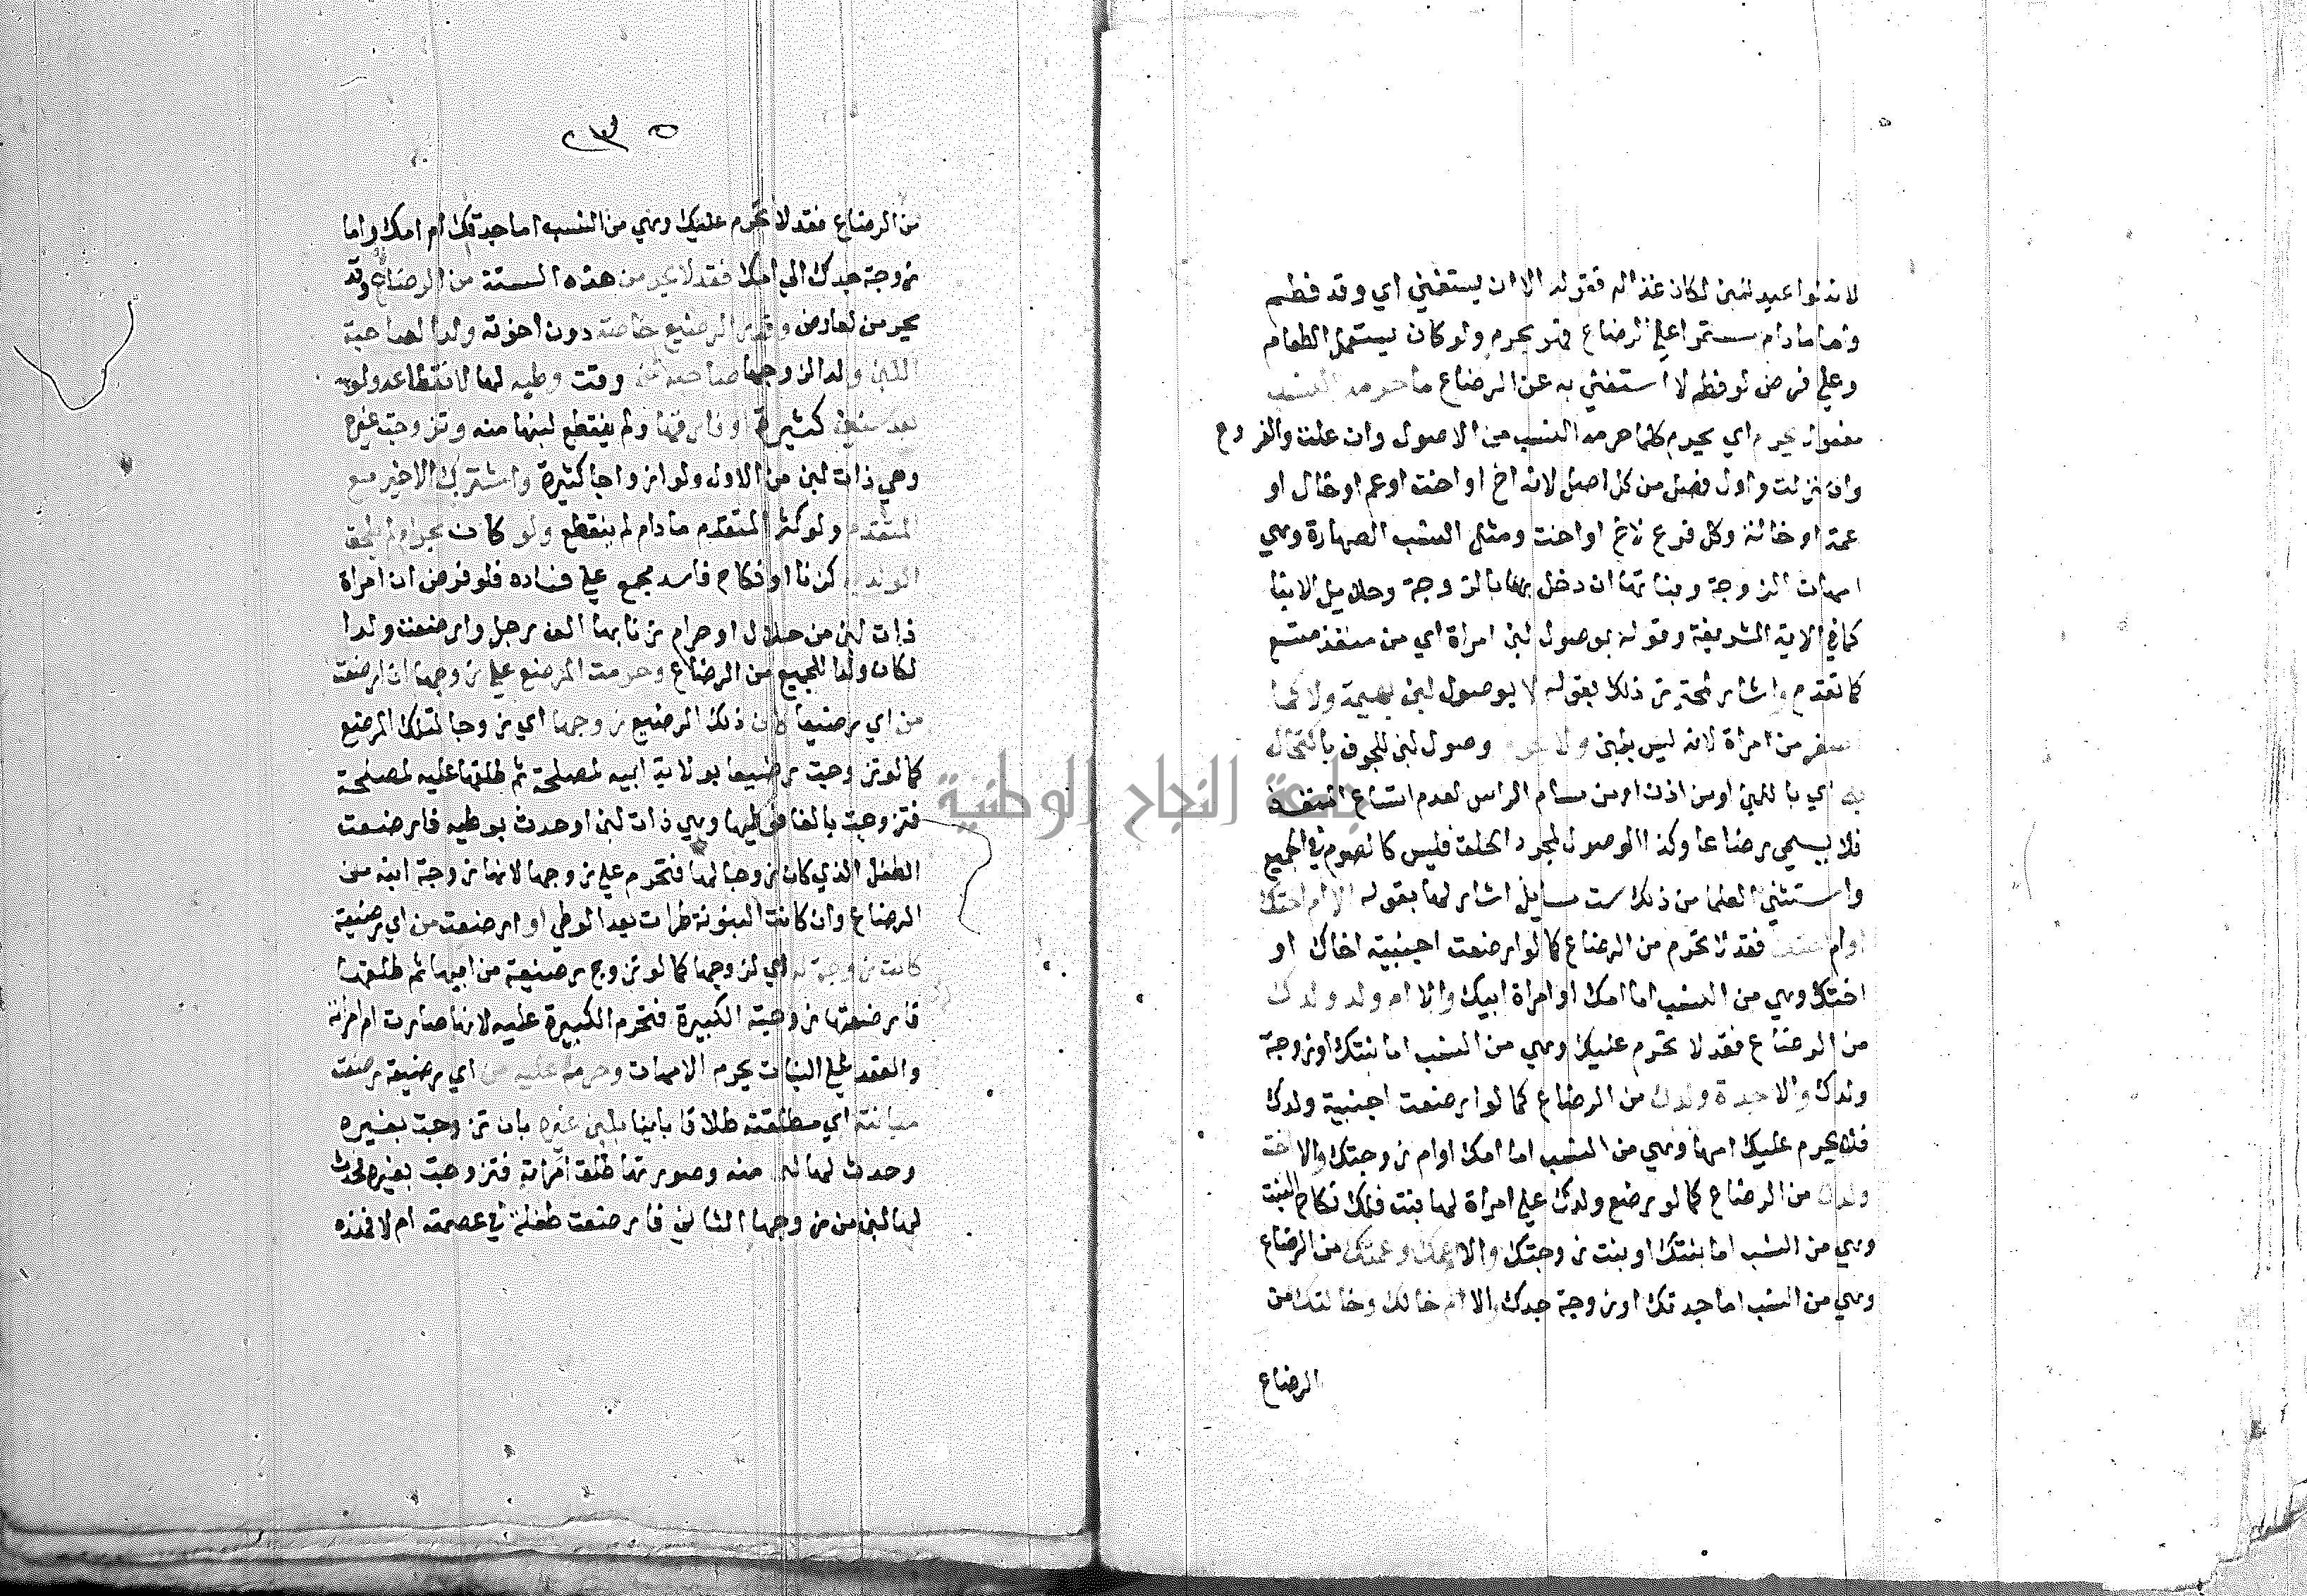 لانه لو اعيد للبن لكان غذا له فقوله الا ان يستغني اي وقد فطم
واما مادام مستمرا علي الرضاع فهو يحرم ولو كان يستعمل الطعام
وعلي فرض لو فطم لا استغني به عن الرضاع ما حرمه النسب
مفعول يحرم اي يحرم كلما حرمه النسب من الاصول وان علت والفروع
وان نزلت واول فصل من كل اصل لانه اخ او اخت او عم او خال او
عمة او خالة وكل فرع لاخ او اخت ومثل النسب الصهارة وهي
امهات الزوجة وبناتها ان دخل بها بالزوجة وحلايل الابنا
كما في الاية الشريفة وقوله بوصول لبن امراة اي من منفذ متسع
كما تقدم واشار لمحترز ذلك بقوله لا بوصول لبن بهيمة ولا كما
اصفر من امراة لانه ليس بلبن ولا وصول لبن للجوف باكتحال
به اي باللبن او من اذن او من مسام الراس لعدم اتساع المنفذ
فلا يسمي رضاعا وكذا الوصول لمجرد الحلق فليس كالصوم في الجميع
واستثني العلما من ذلك ست مسايل اشار لها بقوله الا ام اختك
او ام فقد لا تحرم من الرضاع كما لو ارضعت اجنبية اخاك او
اختك وهي من النسب اما امك او امراة ابيك والا ام ولد ولدك
من الرضاع فقد لا تحرم عليك وهي من النسب اما بنتك او زوجة
ولدك والا جدة ولدك من الرضاع كما لو ارضعت اجنبية ولدك
فلا يحرم عليك امها وهي من النسب اما امك او ام زوجتك والا اخت
ولدك من الرضاع كما لو رضع ولدك علي امراة لها بنت فلك نكاح البنت
وهي من النسب اما بنتك او بنت زوجتك والا ام عمك وعمتك من الرضاع
وهي من النسب اما جدتك او زوجة جدك والا ام خالك وخالتك من
الرضاع
٢٣٥
من الرضاع فقد لا تحرم عليك وهي من النسب اما جدتك ام امك واما
زوجة جدك ابي امك فقد لا يحرمن هذه الستة من الرضاع وقد
يحرمن لعارض وقدر الرضيع خاصة دون اخوته ولدا لصاحبة
اللبن ولدا لزوجها صاحبه من وقت وطيه لها لانقطاعه ولو
بعد سنين كثيرة او فارقها ولم ينقطع لبنها منه وتزوجت غيره
وهي ذات لبن من الاول ولو ازواجا كثيرة واشترك الاخير مع
المتقدم ولو كثر المتقدم مادام لم ينقطع ولو كان بحرام لم يلحق
الولد به كزنا او نكاح فاسد مجمع علي فساده فلو فرض ان امراة
ذات لبن من حلال او حرام زنا بها الف رجل وارضعت ولدا
لكان ولدا للجميع من الرضاع وحرمت المرضع علي زوجها ان ارضعت
من اي رضيعا كان ذلك الرضيع زوجها اي زوجا لتلك المرضع
كما لو تزوجت رضيعا بولاية ابيه لمصلحة ثم طلقها عليه لمصلحة
فتزوجت بالغا فوطيها وهي ذات لبن او حدث بوطيه فارضعت
الطفل الذي كان زوجا لها فتحرم علي زوجها لانها زوجة ابنه من
الرضاع وان كانت البنونة طرات بعد الوطي او ارضعت من اي رضيعة
كانت زوجة له اي لزوجها كما لو تزوج رضيعة من ابيها ثم طلقها
فارضعتها زوجته الكبيرة فتحرم الكبيرة عليه لانها صارت ام امراته
والعقد علي البنات يحرم الامهات وحرمة عليه من اي رضيعة رضعت
مبانته اي مطلقته طلاقا باينا بلبن غيره بان تزوجت بغيره
وحدث لها لبن منه وصورتها طلق امراته فتزوجت بغيره فحدث
لها لبن من زوجها الثاني فارضعت طفلة في عصمته ام لا فهذه